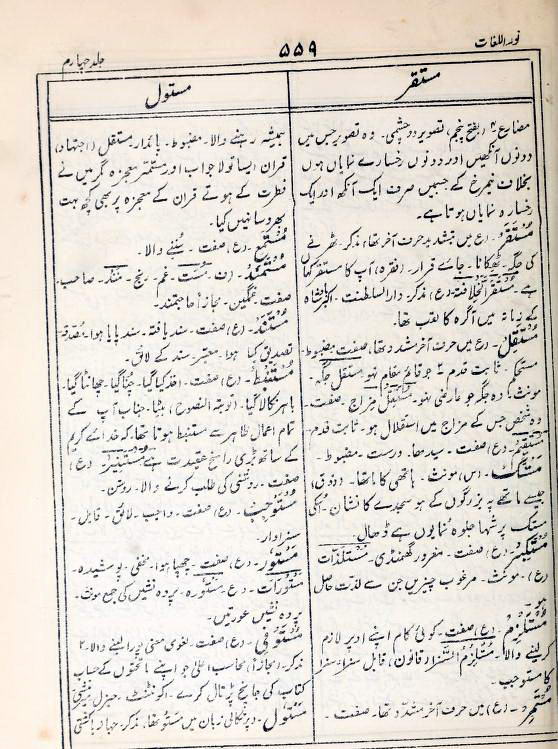 نور اللغات
۵۵۹
جلد چہارم
مستقر
مضارع ۳ (بفتح پنجم) تصویر دو چشمی۔ وہ تصویر جس میں
دونوں آنکھیں اور دونوں رخسارے نمایاں ہوں
بخلاف نیمرخ کے جسمیں صرف ایک آنکھ اور ایک
رخسارہ نمایاں ہوتا ہے۔
مُسْتَقَر۔ (ع) میں بتشدید حرف آخر تھا) مذکر۔ ٹھرنے
کی جگہ۔ ٹھکانا۔ جائے قرار۔ (فقرہ) آپ کا مستقر کہاں
ہے۔ مُسْتَقَرُّ الْخِلَافَۃ۔ (ع) مذکر۔ دار السلطنت۔ اکبر بادشاہ
کے زمانہ میں آگرہ کا لقب تھا۔
مُسْتَقِل۔ (ع) میں حرف آخر مشدد تھا) صفت۔ مضبوط۔
مستحکم۔ ثابت قدم ۲ جو قائم مقام نہو مستقل جگہ۔
مونث۔ وہ جگہ جو عارضی نہو۔ مستقل مزاج۔ صفت۔
وہ شخص جس کے مزاج میں استقلال ہو۔ ثابت قدم۔
مُسْتَقِیْم۔ (ع) صفت۔ سیدھا۔ درست۔ مضبوط۔
مَسْتَک۔ (س) مونث۔ ہاتھی کا ماتھا۔ (ذوق)
جیسے ماتھے پر بزرگوں کے ہو سجدے کا نشان۔ اُسکی
مستک پر شہا جلوہ نما یوں ہے ڈھال
مُسْتَکْبِر۔ (ع) صفت۔ مغرور گھمنڈی۔ مُسْتَلَذَّات
(ع)۔ مونث۔ مرغوب چیزیں جن سے لذت حاصل
ہو۔
مُسْتَلْزِم۔ (ع) صفت۔ کوئی کام اپنے اوپر لازم
کرلینے والا۔ مُسْتَلْزِمُ السَّزا (قانون) قابل سزا۔ سزا
کا مستوجب۔
مُسْتَمِر۔ (ع) میں حرف آخر مشدد تھا۔ صفت۔
مستول
ہمیشہ رہنے والا۔ مضبوط۔ پائدار۔ مستقل (اجتہاد)
قران ایسا تو لاجواب اور مستمر معجزہ مگر میں نے
فطرت کے ہوتے قران کے معجزہ پر بھی کچھ بہت
بھروسا نہیں کیا۔
مُسْتَمِع۔ (ع) صفت۔ سننے والا۔
مُسْتَمَنْد۔ (ف) مُسْت۔ غم۔ رنج۔ مند۔ صاحب۔
صفت۔ غمگین۔ مجازاً حاجتمند۔
مُسْتَنَد۔ (ع) صفت۔ سند یافتہ۔ سند پایا ہوا۔ مصدقہ۔
تصدیق کیا ہوا۔ معتبر۔ سند کے لائق۔
مُسْتَنْبَط۔ (ع) صفت۔ اخذ کیا گیا۔ چنا گیا۔ چھانٹا گیا۔
باہر نکالا گیا۔ (توبتہ النصوح) بیٹا۔ جناب آپ کے
تمام اعمال ظاہر سے مستنبط ہوتا تھا کہ خدائے کریم
کے ساتھ بڑی راسخ عقیدت ہے مُسْتَنِیْر۔ (ع)
صفت۔ روشنی کی طلب کرنے والا۔ روشن۔
مُسْتَوجِب۔ (ع) صفت۔ واجب۔ لائق۔ قابل۔
سزاوار۔
مَسْتُوْر۔ (ع) صفت۔ چھپا ہوا۔ مخفی۔ پوشیدہ۔
مَسْتُوْرات۔ (ع) مستورہ۔ پردہ نشیں کی جمع مونث۔
پردہ نشیں عورتیں۔
مُسْتَوفِی۔ (ع) صفت۔ لغوی معنی پورا لینے والا۔ ۲
مذکر۔ (مجازاً) محاسب اعلیٰ جو اپنے ماتحتوں کے حساب
کتاب کی جانچ پڑتال کرے۔ اکونٹنٹ۔ جنرل۔
مَسْتُول۔ (پرتگالی زبان میں مستو تھا) مذکر۔ جہاز یا کشتی